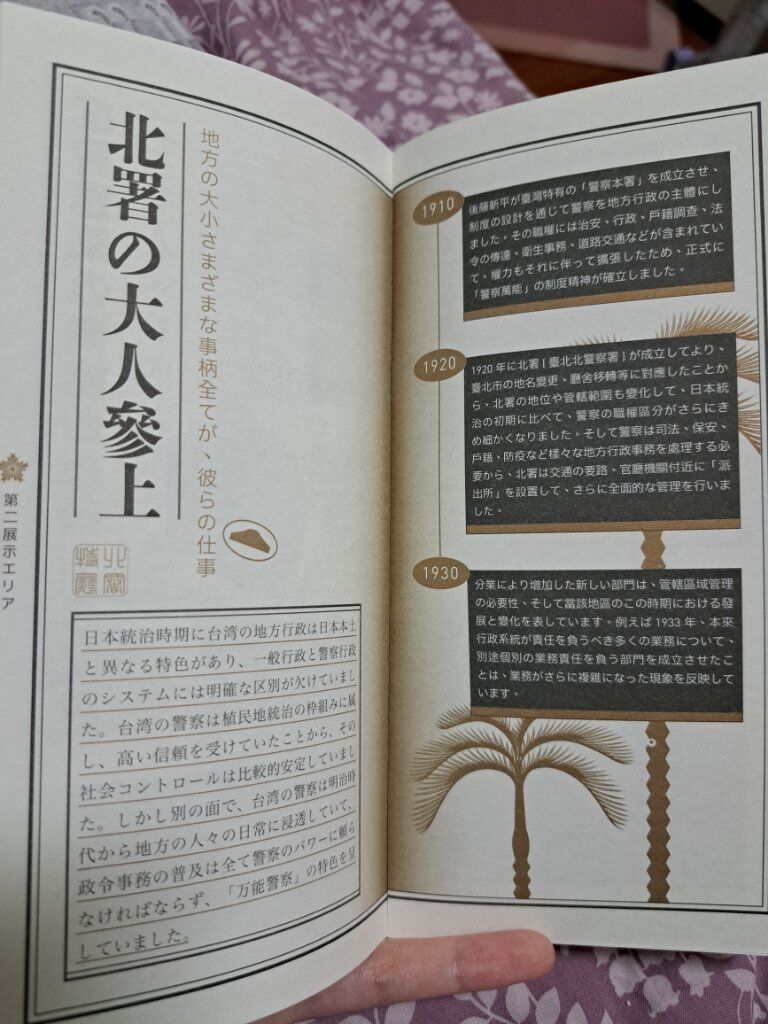 北署の大人參上
地方の大小さまざまな事柄全てが、彼らの仕事
第二展示エリア
日本統治時期に台湾の地方行政は日本本土
と異なる特色があり、一般行政と警察行政
のシステムには明確な区別が欠けていまし
た。台湾の警察は植民地統治の枠組みに属
し、高い信頼を受けていたことから、その
社会コントロールは比較的安定していまし
た。しかし別の面で、台湾の警察は明治時
代から地方の人々の日常に浸透していて、
政令事務の普及は全て警察のパワーに頼ら
なければならず、「万能警察」の特色を呈
していました。
1910
後藤新平が臺灣特有の「警察本署」を成立させ、
制度の設計を通じて警察を地方行政の主體にし
ました。その職權には治安、行政、戶籍調查、法
令の傳達、衛生事務、道路交通などが含まれてい
て、權力もそれに伴って擴張したため、正式に
「警察萬能」の制度精神が確立しました。
1920
1920 年に北署 [ 臺北北警察署 ] が成立してより、
臺北市の地名變更、廳舍移轉等に對應したことか
ら、北署の地位や管轄範圍も變化して、日本統
治の初期に比べて、警察の職權區分がさらにき
め細かくなりました。そして警察は司法、保安、
戶籍、防疫など様々な地方行政事務を處理する必
要から、北署は交通の要路、官廳機關付近に「派
出所」を設置して、さらに全面的な管理を行いま
した。
1930
分業により增加した新しい部門は、管轄區域管理
の必要性、そして當該地區のこの時期における發
展と變化を表しています。例えば 1933 年、本來
行政系統が責任を負うべき多くの業務について、
別途個別の業務責任を負う部門を成立させたこ
とは、業務がさらに複雜になった現象を反映して
います。